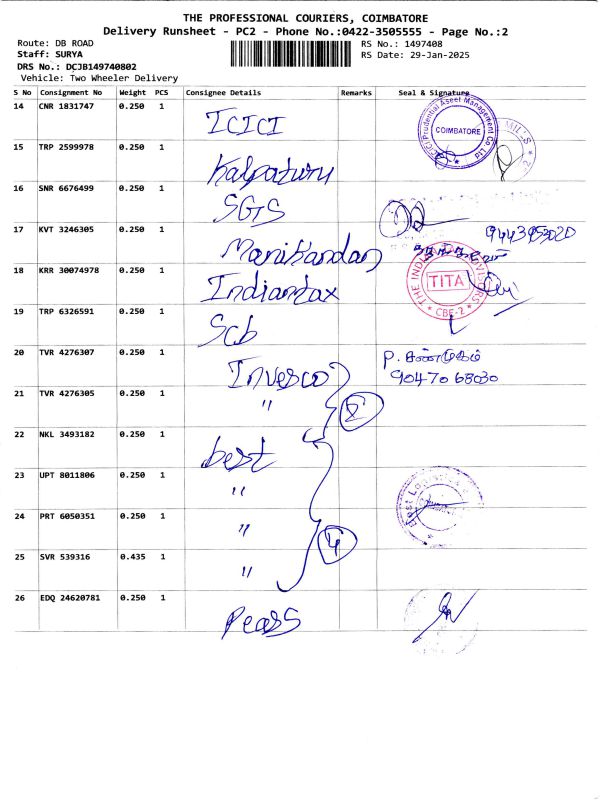 THE PROFESSIONAL COURIERS, COIMBATORE
Delivery Runsheet - PC2 - Phone No.:0422-3505555 - Page No.:2
Route: DB ROAD
RS No.: 1497408
Staff: SURYA
RS Date: 29-Jan-2025
DRS No.: DCJB149740802
Vehicle: Two Wheeler Delivery
S No Consignment No Weight PCS Consignee Details Remarks Seal & Signature
14 CNR 1831747 0.250 1 ICICI
ICICI Prudential Asset Management Co. COIMBATORE
MILLS
15 TRP 2599978 0.250 1 Kalpaturu
16 SNR 6676499 0.250 1 SGS
17 KVT 3246305 0.250 1 Manikandan
18 KRR 30074978 0.250 1 Indiantax
THE INDIAN ADVISORS TITA CBE-2
19 TRP 6326591 0.250 1 Scb
20 TVR 4276307 0.250 1 Invesco P. சண்முகம்
90470 68030
21 TVR 4276305 0.250 1 "
22 NKL 3493182 0.250 1 best
23 UPT 8011806 0.250 1 "
24 PRT 6050351 0.250 1 " 4
25 SVR 539316 0.435 1 "
26 EDQ 24620781 0.250 1 Pears